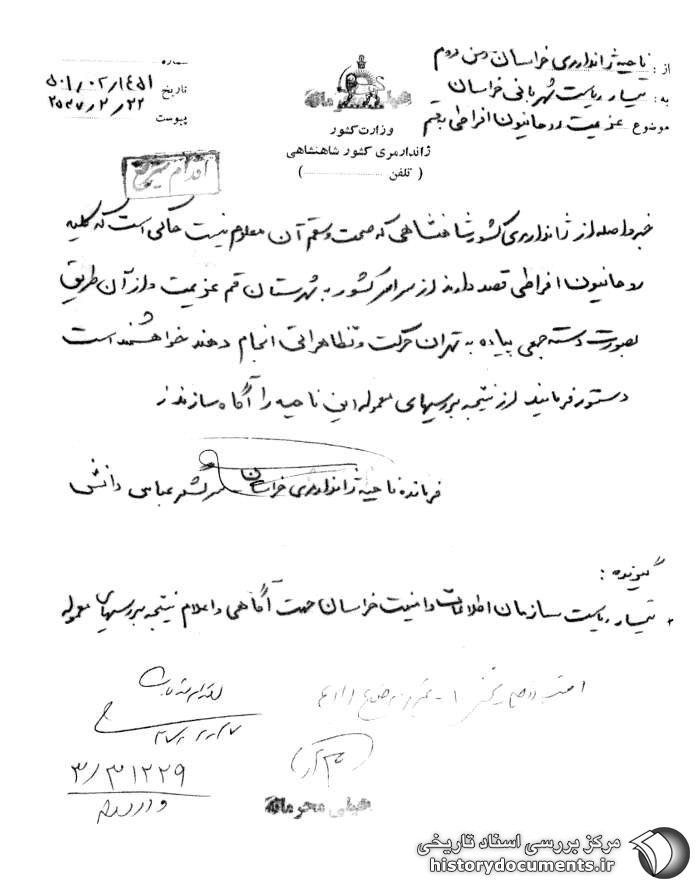 از: ناحیه ژاندارمری خراسان رکن دوم
به: تیمسار ریاست شهربانی خراسان
موضوع عزیمت روحانیون افراطی بقم
شماره
تاریخ ۵۰۱/۰۲/۱۴۵۱
۲۵۳۷/۲/۲۲
پیوست
خیلی محرمانه
وزارت کشور
ژاندارمری کشور شاهنشاهی
( تلفن ................ )
اقدام سریع
خبر واصله از ژاندارمری کشور شاهنشاهی که صحت و سقم آن معلوم نیست حاکی است که کلیه
روحانیون افراطی قصد دارند از سراسر کشور به شهرستان قم عزیمت و از آن طریق
بصورت دسته جمعی پیاده به تهران حرکت و تظاهراتی انجام دهند خواهشمند است
دستور فرمایند از نتیجه بررسیهای معموله این ناحیه را آگاه سازند
فرمانده ناحیه ژاندارمری خراسان - سرلشکر عباسی دانش
گیرنده :
تیمسار ریاست سازمان اطلاعات و امنیت خراسان جهت آگاهی و اعلام نتیجه بررسیهای معموله
۳/۳۱۲۲۹
خیلی محرمانه
مرکز بررسی اسناد تاریخی
historydocuments.ir